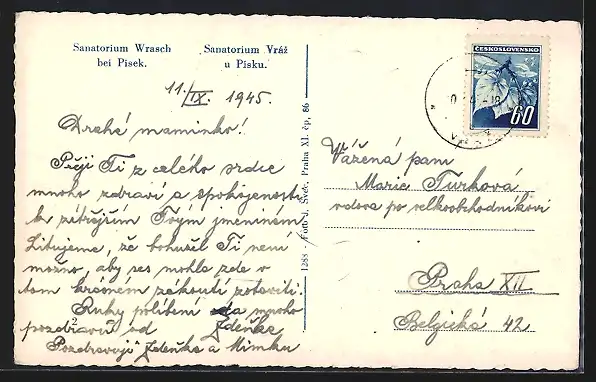 Sanatorium Wrasch
bei Pisek.
Sanatorium Vráž
u Písku.
11./IX. 1945.
Drahé maminko!
Přeji Ti z celého srdce
mnoho zdraví a spokojenosti
k zítřejším Tvým jmeninám
Litujeme, že bohužel Ti není
možno, aby ses mohla zde v
tom krásném zákoutí zotaviti.
Ruky políbení a mnoho
pozdravů od Zdeňka
Pozdravují Zdeňka a Mimku
1288 Foto J. Svec, Praha XI. čp. 86
ČESKOSLOVENSKO
60
Vážená paní
Marie Turková
vdova po velkoobchodníkovi
Praha XII
Belgická 42